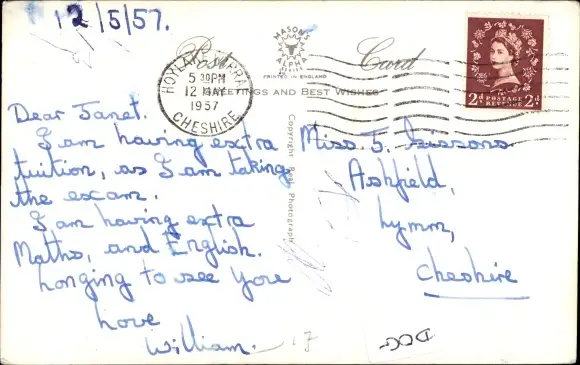 12/5/57.
Post Card
MASON'S
ALPHA
SERIES
PRINTED IN ENGLAND
GREETINGS AND BEST WISHES
HOYLAKE WIRRAL
5 30PM
12 MAY
1957
CHESHIRE
2d POSTAGE 2d
REVENUE
Dear Janet.
I am having extra
tuition, as I am taking
the exam.
I am having extra
Maths, and English.
Longing to see yore
Love
William.
Copyright Real Photograph
Miss J. Sissons
Ashfield,
Lymm,
Cheshire
DOG